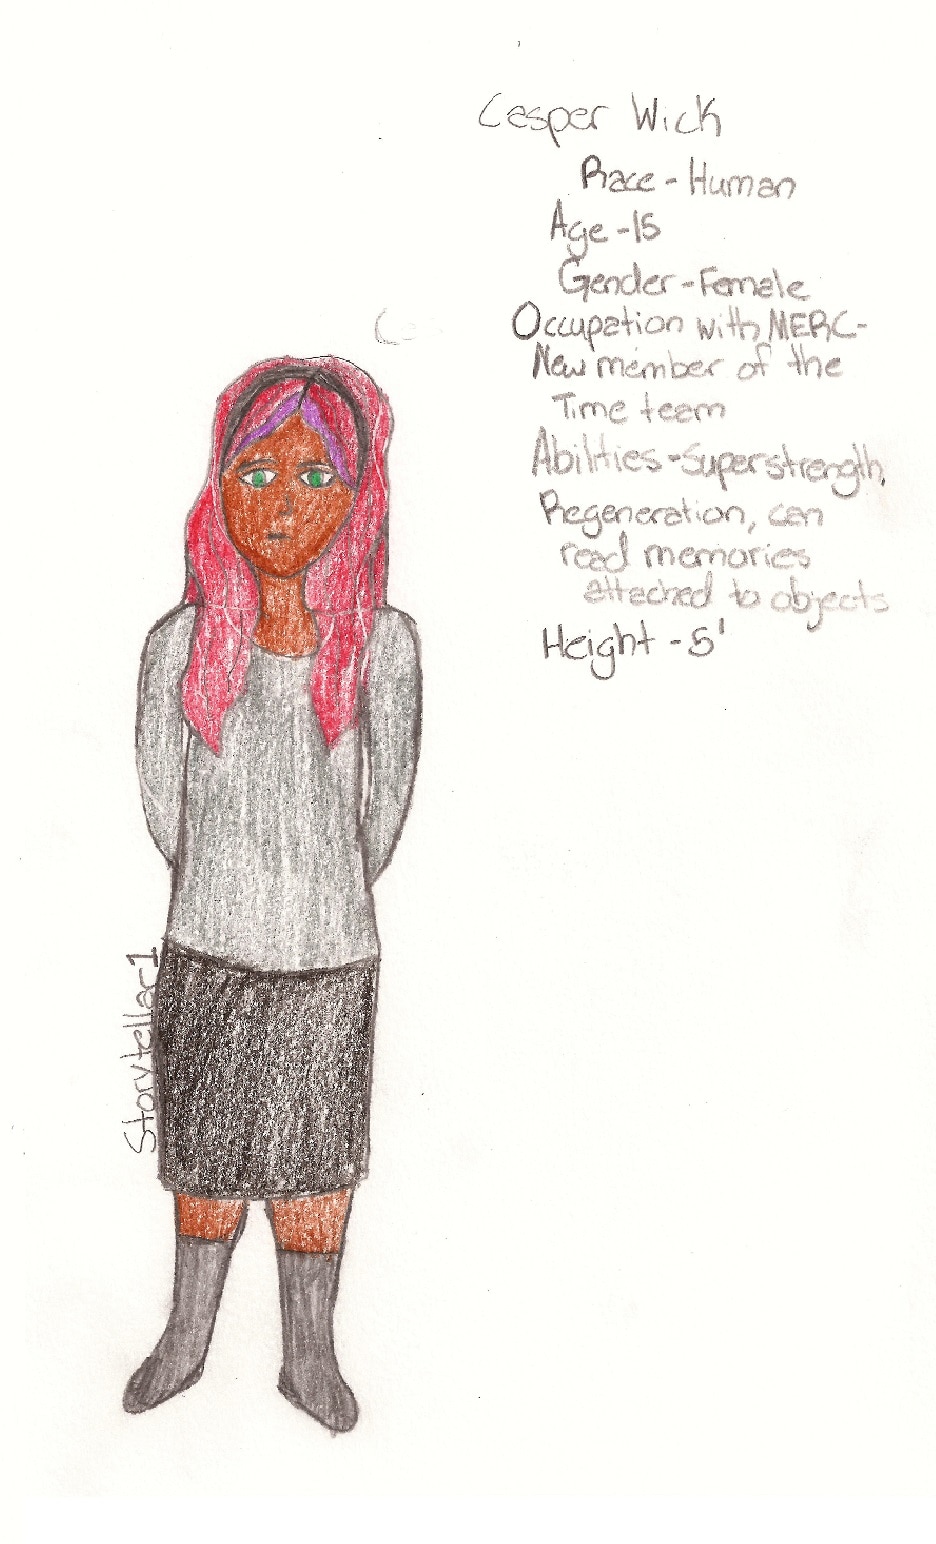 Casper Wick
Race - Human
Age - 15
Gender - Female
Occupation with MERC-
New member of the
Time team
Abilities - Superstrength,
Regeneration, can
read memories
attached to objects
Height - 5'
Ca
Storytellar1